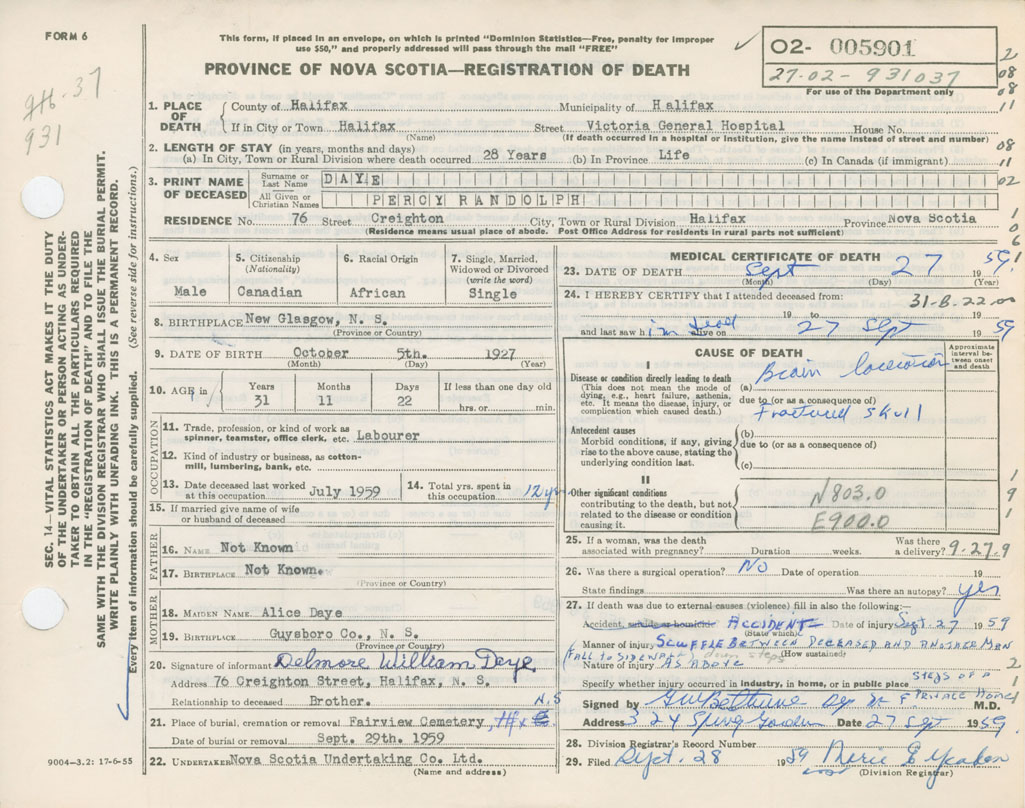 FORM 6
This form, if placed in an envelope, on which is printed "Dominion Statistics—Free, penalty for improper
use $50," and properly addressed will pass through the mail "FREE"
PROVINCE OF NOVA SCOTIA—REGISTRATION OF DEATH
02- 005901
27-02-931037
For use of the Department only
931
SEC. 14—VITAL STATISTICS ACT MAKES IT THE DUTY
OF THE UNDERTAKER OR PERSON ACTING AS UNDER-
TAKER TO OBTAIN ALL THE PARTICULARS REQUIRED
IN THE "REGISTRATION OF DEATH" AND TO FILE THE
SAME WITH THE DIVISION REGISTRAR WHO SHALL ISSUE THE BURIAL PERMIT.
WRITE PLAINLY WITH UNFADING INK. THIS IS A PERMANENT RECORD.
Every item of information should be carefully supplied. (See reverse side for instructions.)
1. PLACE OF DEATH County of Halifax Municipality of Halifax
If in City or Town Halifax Street Victoria General Hospital House No.
(Name) (If death occurred in a hospital or institution, give the name instead of street and number)
2. LENGTH OF STAY (in years, months and days)
(a) In City, Town or Rural Division where death occurred 28 Years (b) In Province Life (c) In Canada (if immigrant)
3. PRINT NAME OF DECEASED Surname or Last Name DAYE
All Given or Christian Names PERCY RANDOLPH
RESIDENCE No. 76 Street Creighton City, Town or Rural Division Halifax Province Nova Scotia
(Residence means usual place of abode. Post Office Address for residents in rural parts not sufficient)
4. Sex Male
5. Citizenship (Nationality) Canadian
6. Racial Origin African
7. Single, Married, Widowed or Divorced (write the word) Single
8. BIRTHPLACE New Glasgow, N. S.
(Province or Country)
9. DATE OF BIRTH October 5th. 1927
(Month) (Day) (Year)
10. AGE in Years Months Days If less than one day old
31 11 22 hrs. or min.
OCCUPATION
11. Trade, profession, or kind of work as
spinner, teamster, office clerk, etc. Labourer
12. Kind of industry or business, as cotton-
mill, lumbering, bank, etc.
13. Date deceased last worked at this occupation July 1959
14. Total yrs. spent in this occupation 12 yrs
15. If married give name of wife
or husband of deceased
FATHER
16. NAME Not Known
17. BIRTHPLACE Not Known.
(Province or Country)
MOTHER
18. MAIDEN NAME. Alice Daye
19. BIRTHPLACE Guysboro Co., N. S.
(Province or Country)
20. Signature of informant Delmore William Daye
Address 76 Creighton Street, Halifax, N. S.
Relationship to deceased Brother.
21. Place of burial, cremation or removal Fairview Cemetery, Hfx N.S
Date of burial or removal Sept. 29th. 1959
22. UNDERTAKER Nova Scotia Undertaking Co. Ltd.
(Name and address)
9004-3.2: 17-6-55
MEDICAL CERTIFICATE OF DEATH
23. DATE OF DEATH Sept 27 1959
(Month) (Day) (Year)
24. I HEREBY CERTIFY that I attended deceased from:
19 to
and last saw him dead alive on 27 Sept 1959
CAUSE OF DEATH
Approximate interval between onset and death
I
Disease or condition directly leading to death
(This does not mean the mode of
dying, e.g., heart failure, asthenia,
etc. It means the disease, injury, or
complication which caused death.)
(a) Brain laceration
due to (or as a consequence of)
Fractured Skull
Antecedent causes
Morbid conditions, if any, giving
rise to the above cause, stating the
underlying condition last.
(b)
due to (or as a consequence of)
(c)
II
Other significant conditions
contributing to the death, but not
related to the disease or condition
causing it.
N803.0
E900.0
25. If a woman, was the death
associated with pregnancy? Duration weeks. Was there a delivery? 9-27-9
26. Was there a surgical operation? No Date of operation 19
State findings Was there an autopsy? Yes
27. If death was due to external causes (violence) fill in also the following:—
Accident, suicide or homicide ACCIDENT Date of injury Sept. 27 1959
(State which)
Manner of injury SCUFFLE BETWEEN DECEASED AND ANOTHER MAN
(FALL TO SIDEWALK down steps (How sustained)
Nature of injury AS ABOVE
Specify whether injury occurred in industry, in home, or in public place STEPS OF A
PRIVATE HOME
Signed by M.D.
Address 324 Spring Garden Date 27 Sept 1959
28. Division Registrar's Record Number
29. Filed Sept. 28 1959 Marie
(Division Registrar)